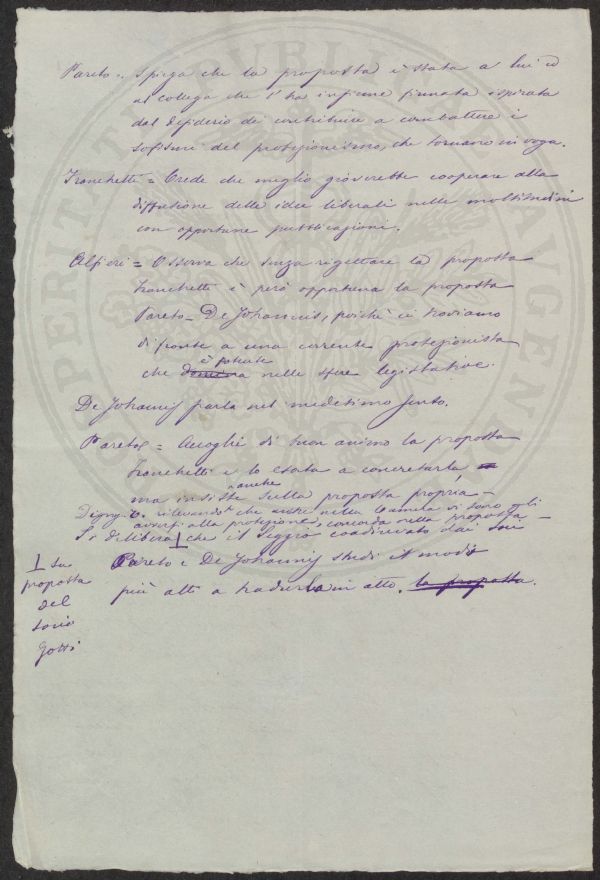 Pareto = Spiega che la proposta è stata a lui ed
al collega che l'ha insieme firmata ispirata
dal desiderio di contribuire a combattere i
sofismi del protezionismo, che tornano in voga.
Franchetti = Crede che meglio gioverebbe cooperare alla
diffusione delle idee liberali nelle moltitudini
con opportune pubblicazioni.
Alfieri = Osserva che senza rigettare la proposta
Franchetti è però opportuna la proposta
Pareto - De Johannis, poichè ci troviamo
di fronte a una corrente protezionista
è potente
che domina nelle sfere legislative.
De Johannis parla nel medesimo senso.
Pareto = Accoglie di buon animo la proposta
Franchetti e lo esorta a concretarla
anche
ma insiste sulla proposta propria -
rilevando che anche nella Camera vi sono egli
avversi alla protezione, concorda nella proposta -
Si delibera ⊥ che il Seggio coadiuvato dai soci
Pareto e De Johannis studi il modo
più atti a tradurla in atto. la proposta.
⊥ su
proposta
del
socio
Gotti
PROSPERITATI PUBLICAE AUGENDAE